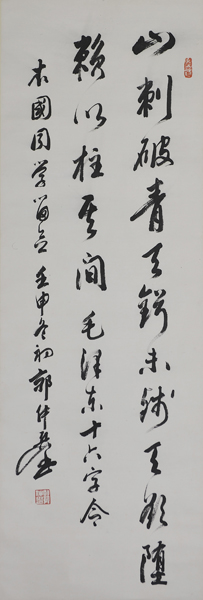 山刺破青天锷未残天欲堕
赖以柱其间毛泽东十六字令
本國同学留念壬申冬初郭仲